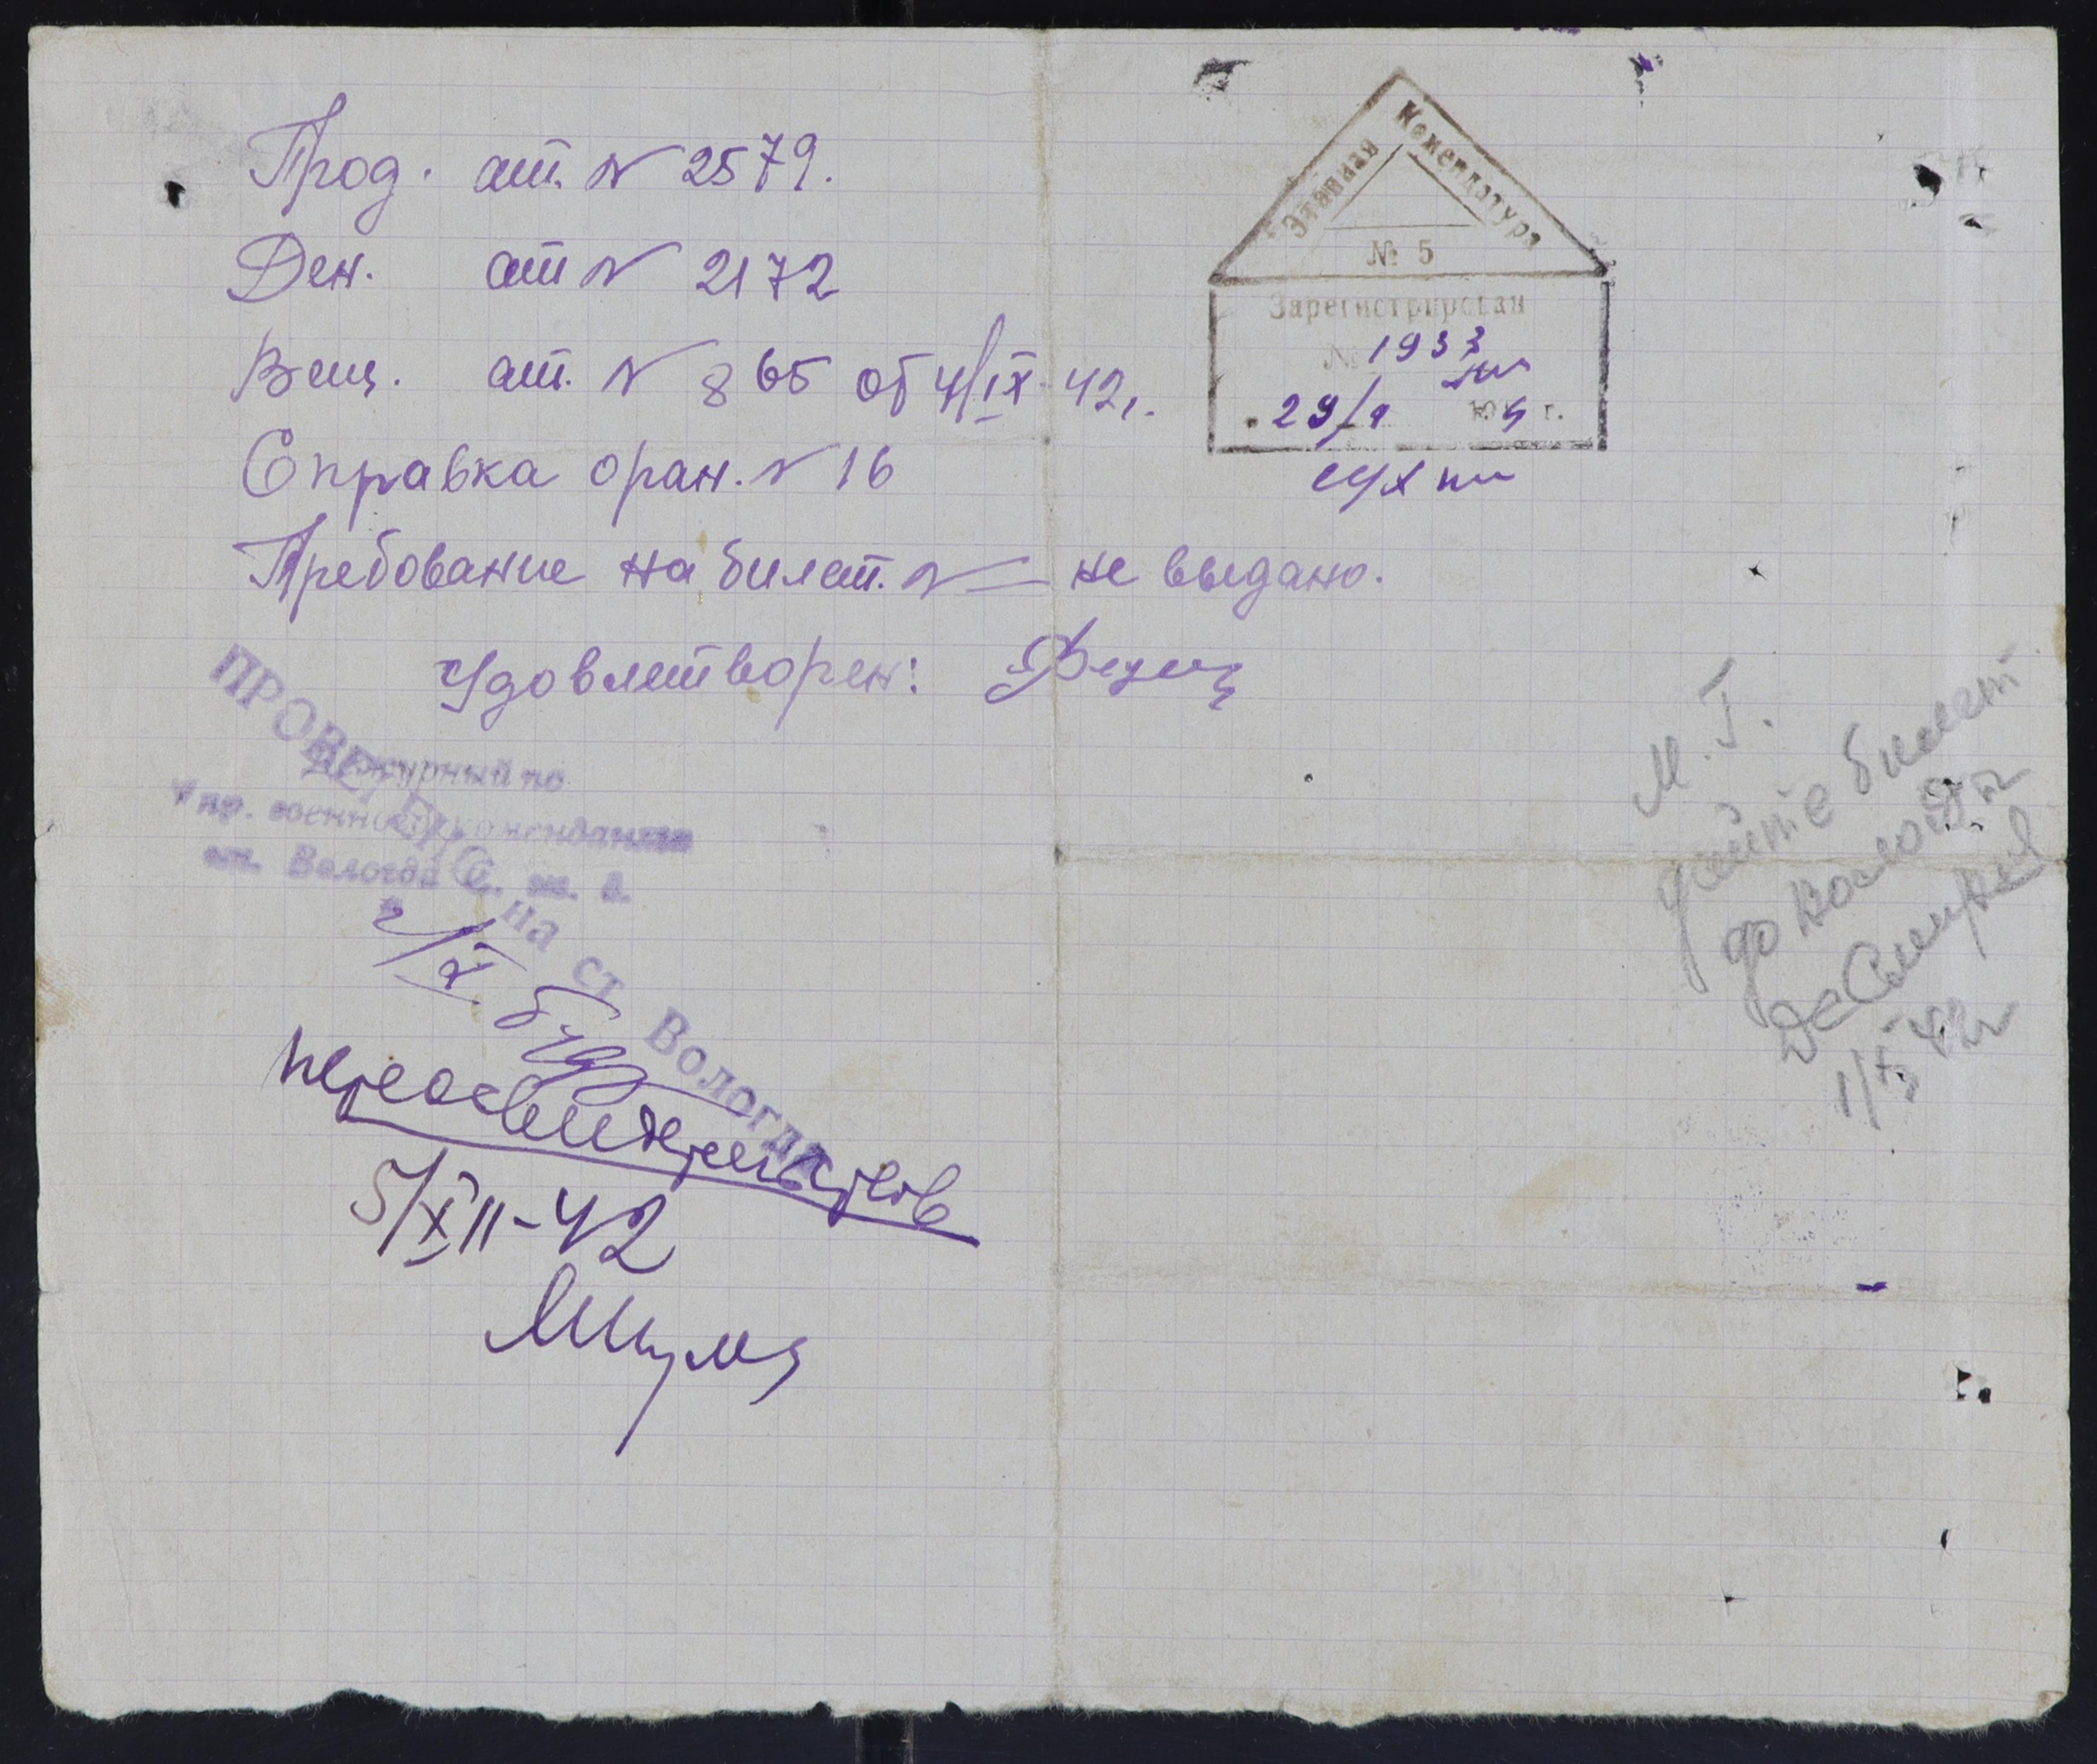 Прод. ат. № 2579.
Ден. ат № 2172
Вещ. ат. № 865 от 4/IX-42г.
Справка оран. № 16
Требование на билет. № — не выдано.
Удовлетворен:
Этапная Комендатура
№ 5
Зарегистрирован
№ 1933
29/9 194 г.
ПРОВЕРЕН на ст Вологда
Дежурный по
Упр. военного коменданта
ст. Вологда С. ж. д.
2/X
5/XII-42
М. Г.
дайте билет
до Вологды
1/X 42г